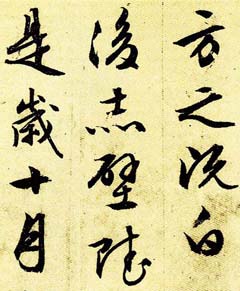 方之既白
後赤壁賦
是歲十月